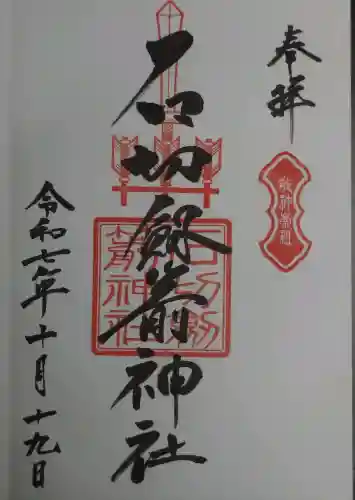 奉拝
敬神崇祖
石切劔箭神社
石切劔箭神社
令和七年十月十九日